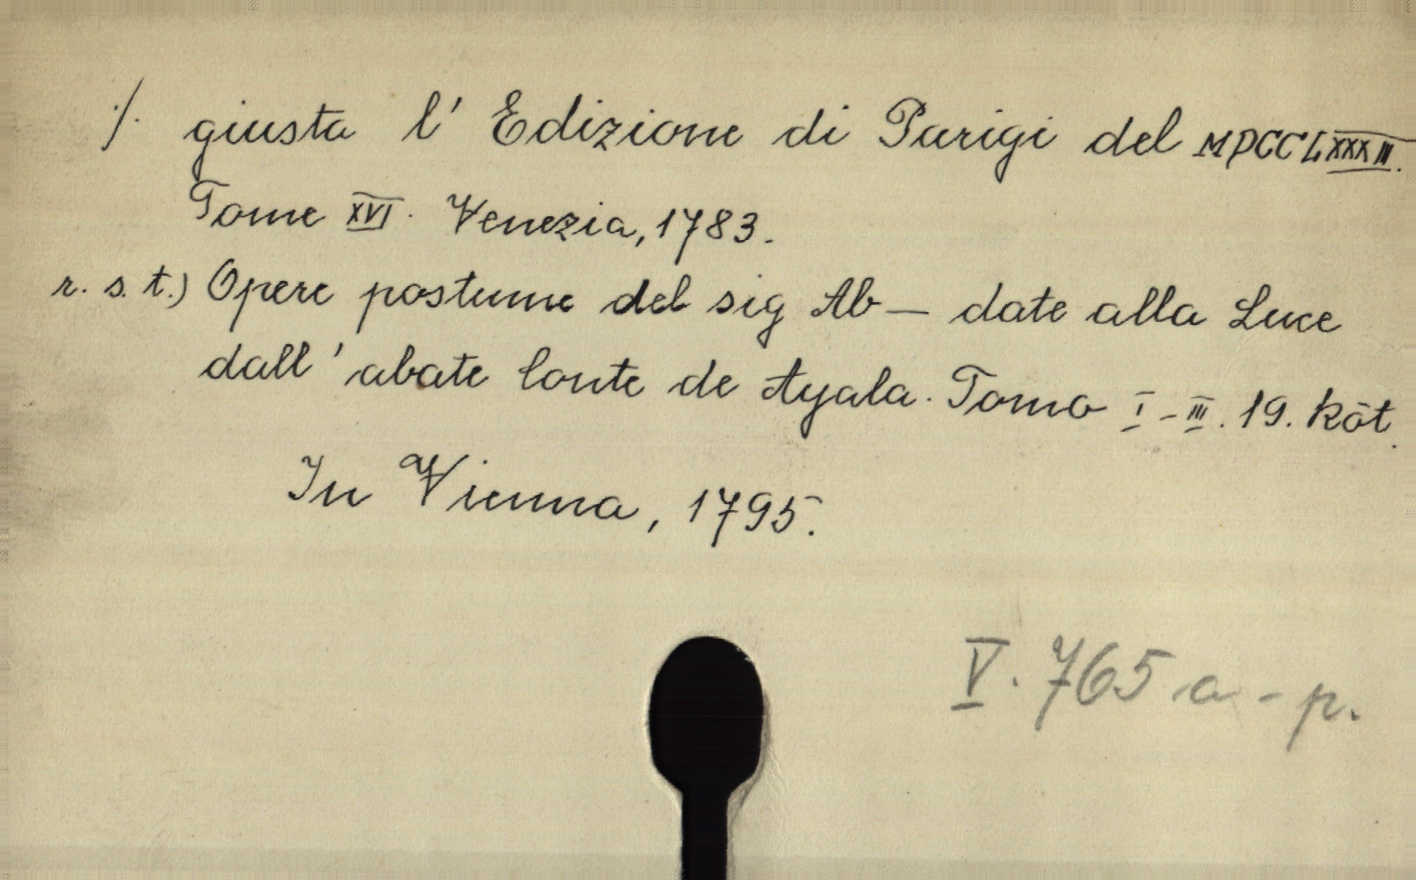 ./. giusta l' Edizione di Parigi del MDCCLXXXII.
Tome XVI. Venezia, 1783.
r. s. t.) Opere postume del sig Ab — date alla Luce
dall' abate Conte de Ayala. Tomo I-III. 19. köt.
In Vienna, 1795.
V. 765 a - p.